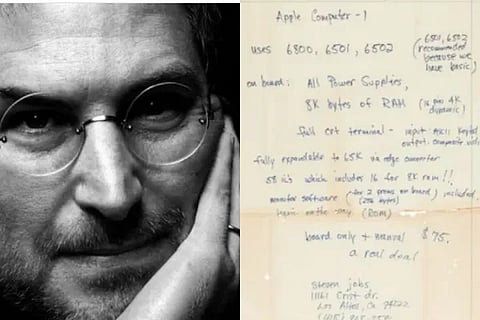 Apple Computer - 1
uses 6800, 6501, 6502 (6501, 6502 recommended because we have basic)
on board: All Power Supplies,
8K bytes of RAM (16 pin 4K dynamic)
full crt terminal - input ASCII
output: composite
fully expandable to 65K via edge
58 ic's which includes 16 for 8K ram!!
software (for 2 proms on board) included
(256 bytes)
on the way (ROM)
board only + manual $75.
a real deal
Steven jobs
11161 Crist dr.
Los Altos, Ca